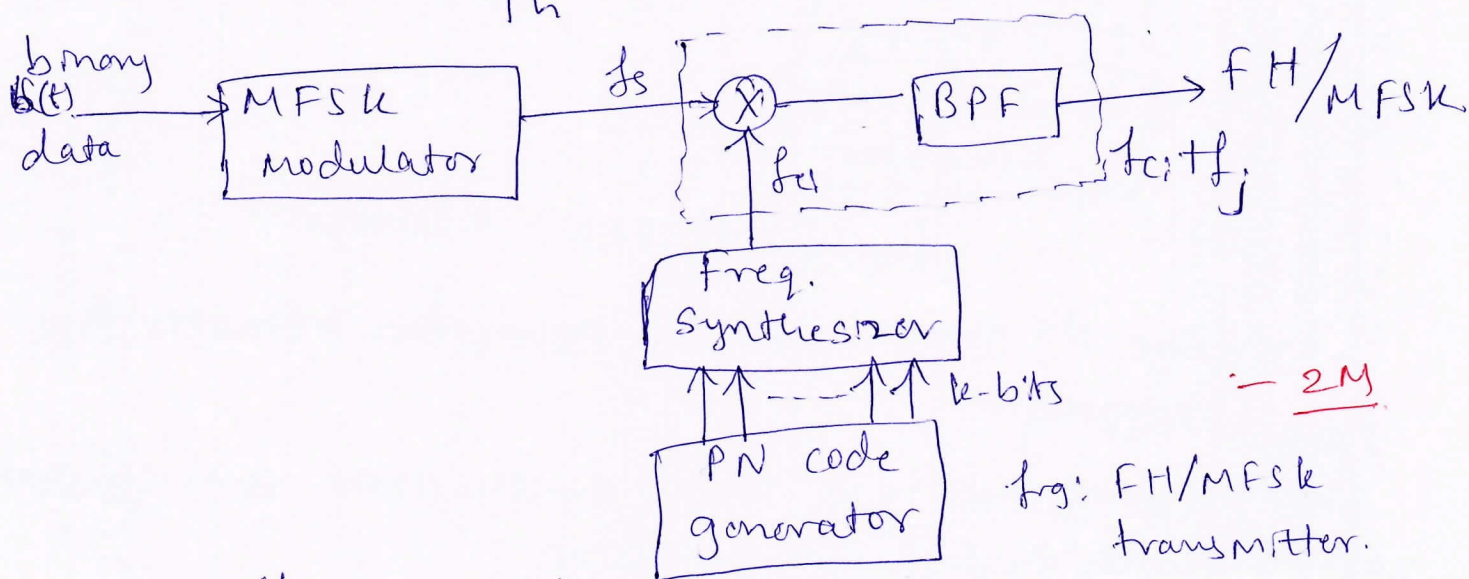 Th
binary
b(t)
data
MFSK
Modulator
fs
X
BPF
FH/MFSK
fci+fj
fci
Freq.
Synthesizer
k-bits
- 2M
PN code
generator
fig: FH/MFSK
transmitter.